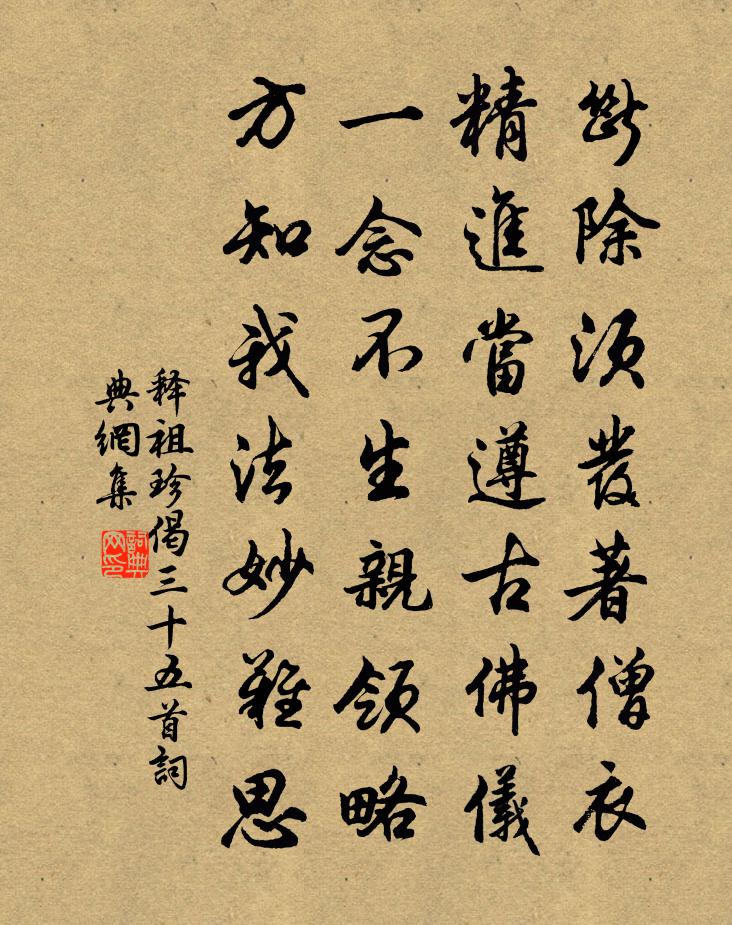 斷除須髮著僧衣
精進當遵古佛儀
一念不生親領略
方知我法妙難思
释祖珍偈三十五首詞
典網集
詞典
网印